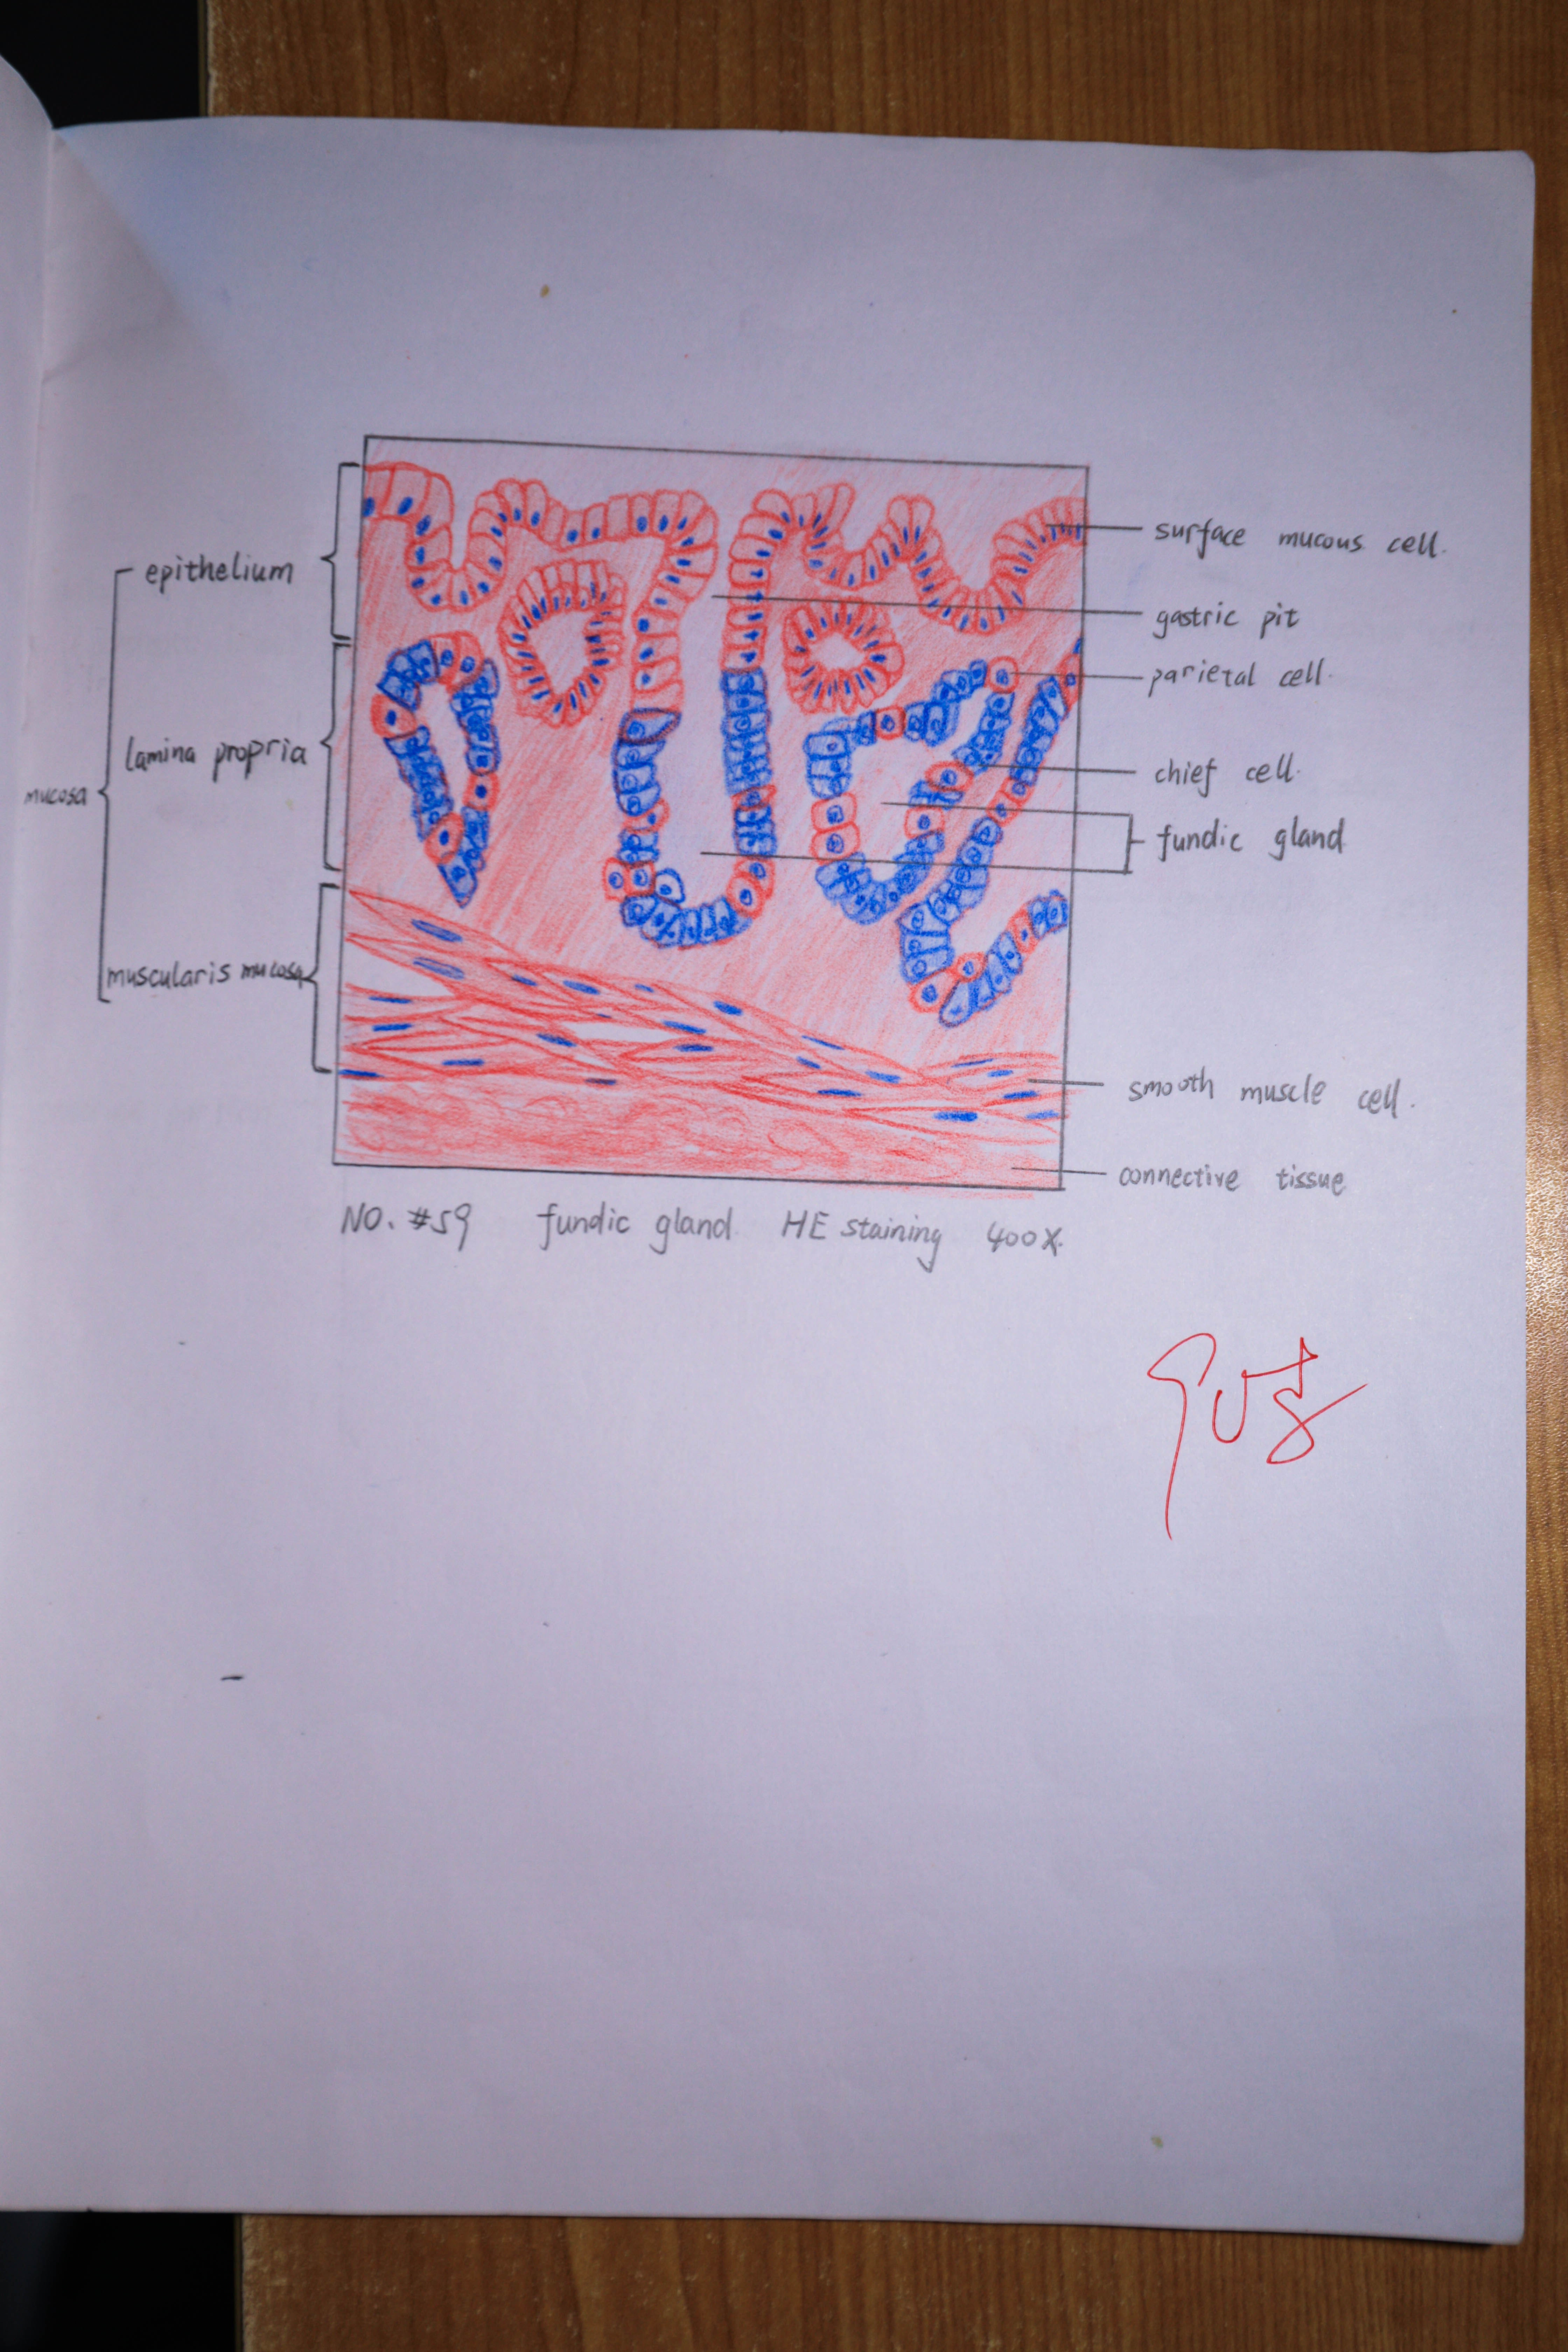 epithelium
lamina propria
mucosa
muscularis mucosa
surface mucous cell.
gastric pit
parietal cell.
chief cell.
fundic gland
smooth muscle cell.
connective tissue
NO. #59 fundic gland. HE staining 400X.